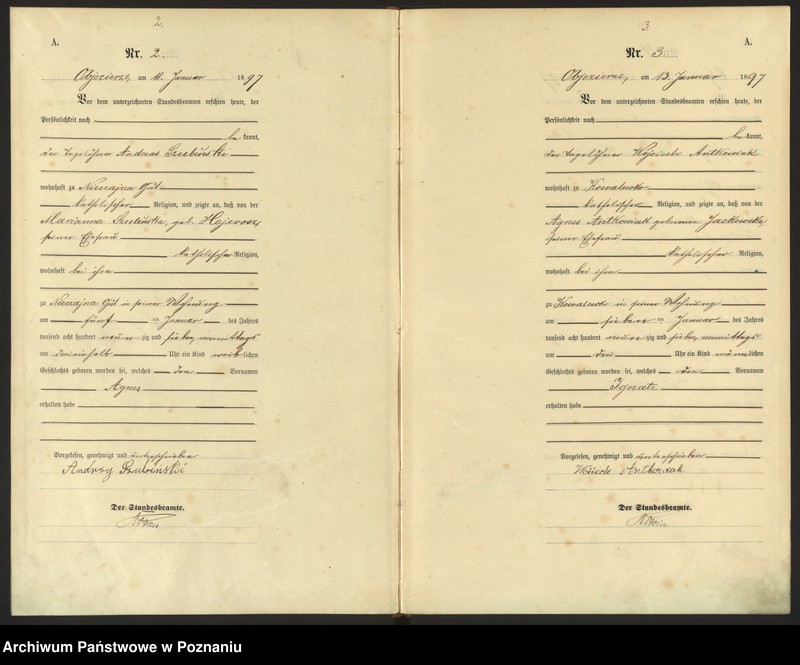 2.
A.
Nr. 2.
Objezierze, am 11. Januar 1897
Vor dem unterzeichneten Standesbeamten erschien heute, der
Persönlichkeit nach
be kannt,
der Tagelöhner Andreas Szubiński
wohnhaft zu Nieczajna Gut
katholischer Religion, und zeigte an, daß von der
Marianna Szubińska, geb.
seiner Ehefrau
katholischer Religion,
wohnhaft bei ihm
zu Nieczajna Gut in seiner Wohnung
am fünf ten Januar des Jahres
tausend acht hundert neun zig und sieben, vormittags
um Uhr ein Kind weib lichen
Geschlechts geboren worden sei, welches den Vornamen
Agnes
erhalten habe
Vorgelesen, genehmigt und unterschrieben
Andrzy Szubiński
Der Standesbeamte.
3.
A.
Nr. 3.
Objezierze, am 13. Januar 1897
Vor dem unterzeichneten Standesbeamten erschien heute, der
Persönlichkeit nach
be kannt,
der Tagelöhner Wojciech Antkowiak
wohnhaft zu Kowalewko
katholischer Religion, und zeigte an, daß von der
Agnes Antkowiak geborene
seiner Ehefrau
katholischer Religion,
wohnhaft bei ihm
zu Kowalewko in seiner Wohnung
am sieben ten Januar des Jahres
tausend acht hundert neun zig und sieben, vormittags
um drei Uhr ein Kind männ lichen
Geschlechts geboren worden sei, welches den Vornamen
Ignatz
erhalten habe
Vorgelesen, genehmigt und unterschrieben
Antkowiak
Der Standesbeamte.
Archiwum Państwowe w Poznaniu